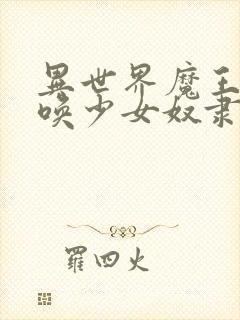 異世界魔王
喚少女奴隶
羅四火